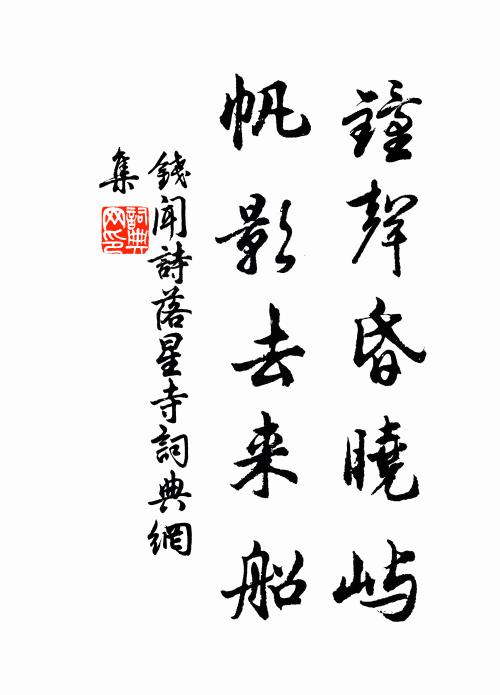 鐘聲昏曉嶼
帆影去来船
錢聞詩落星寺詞典網
集
詞典网印